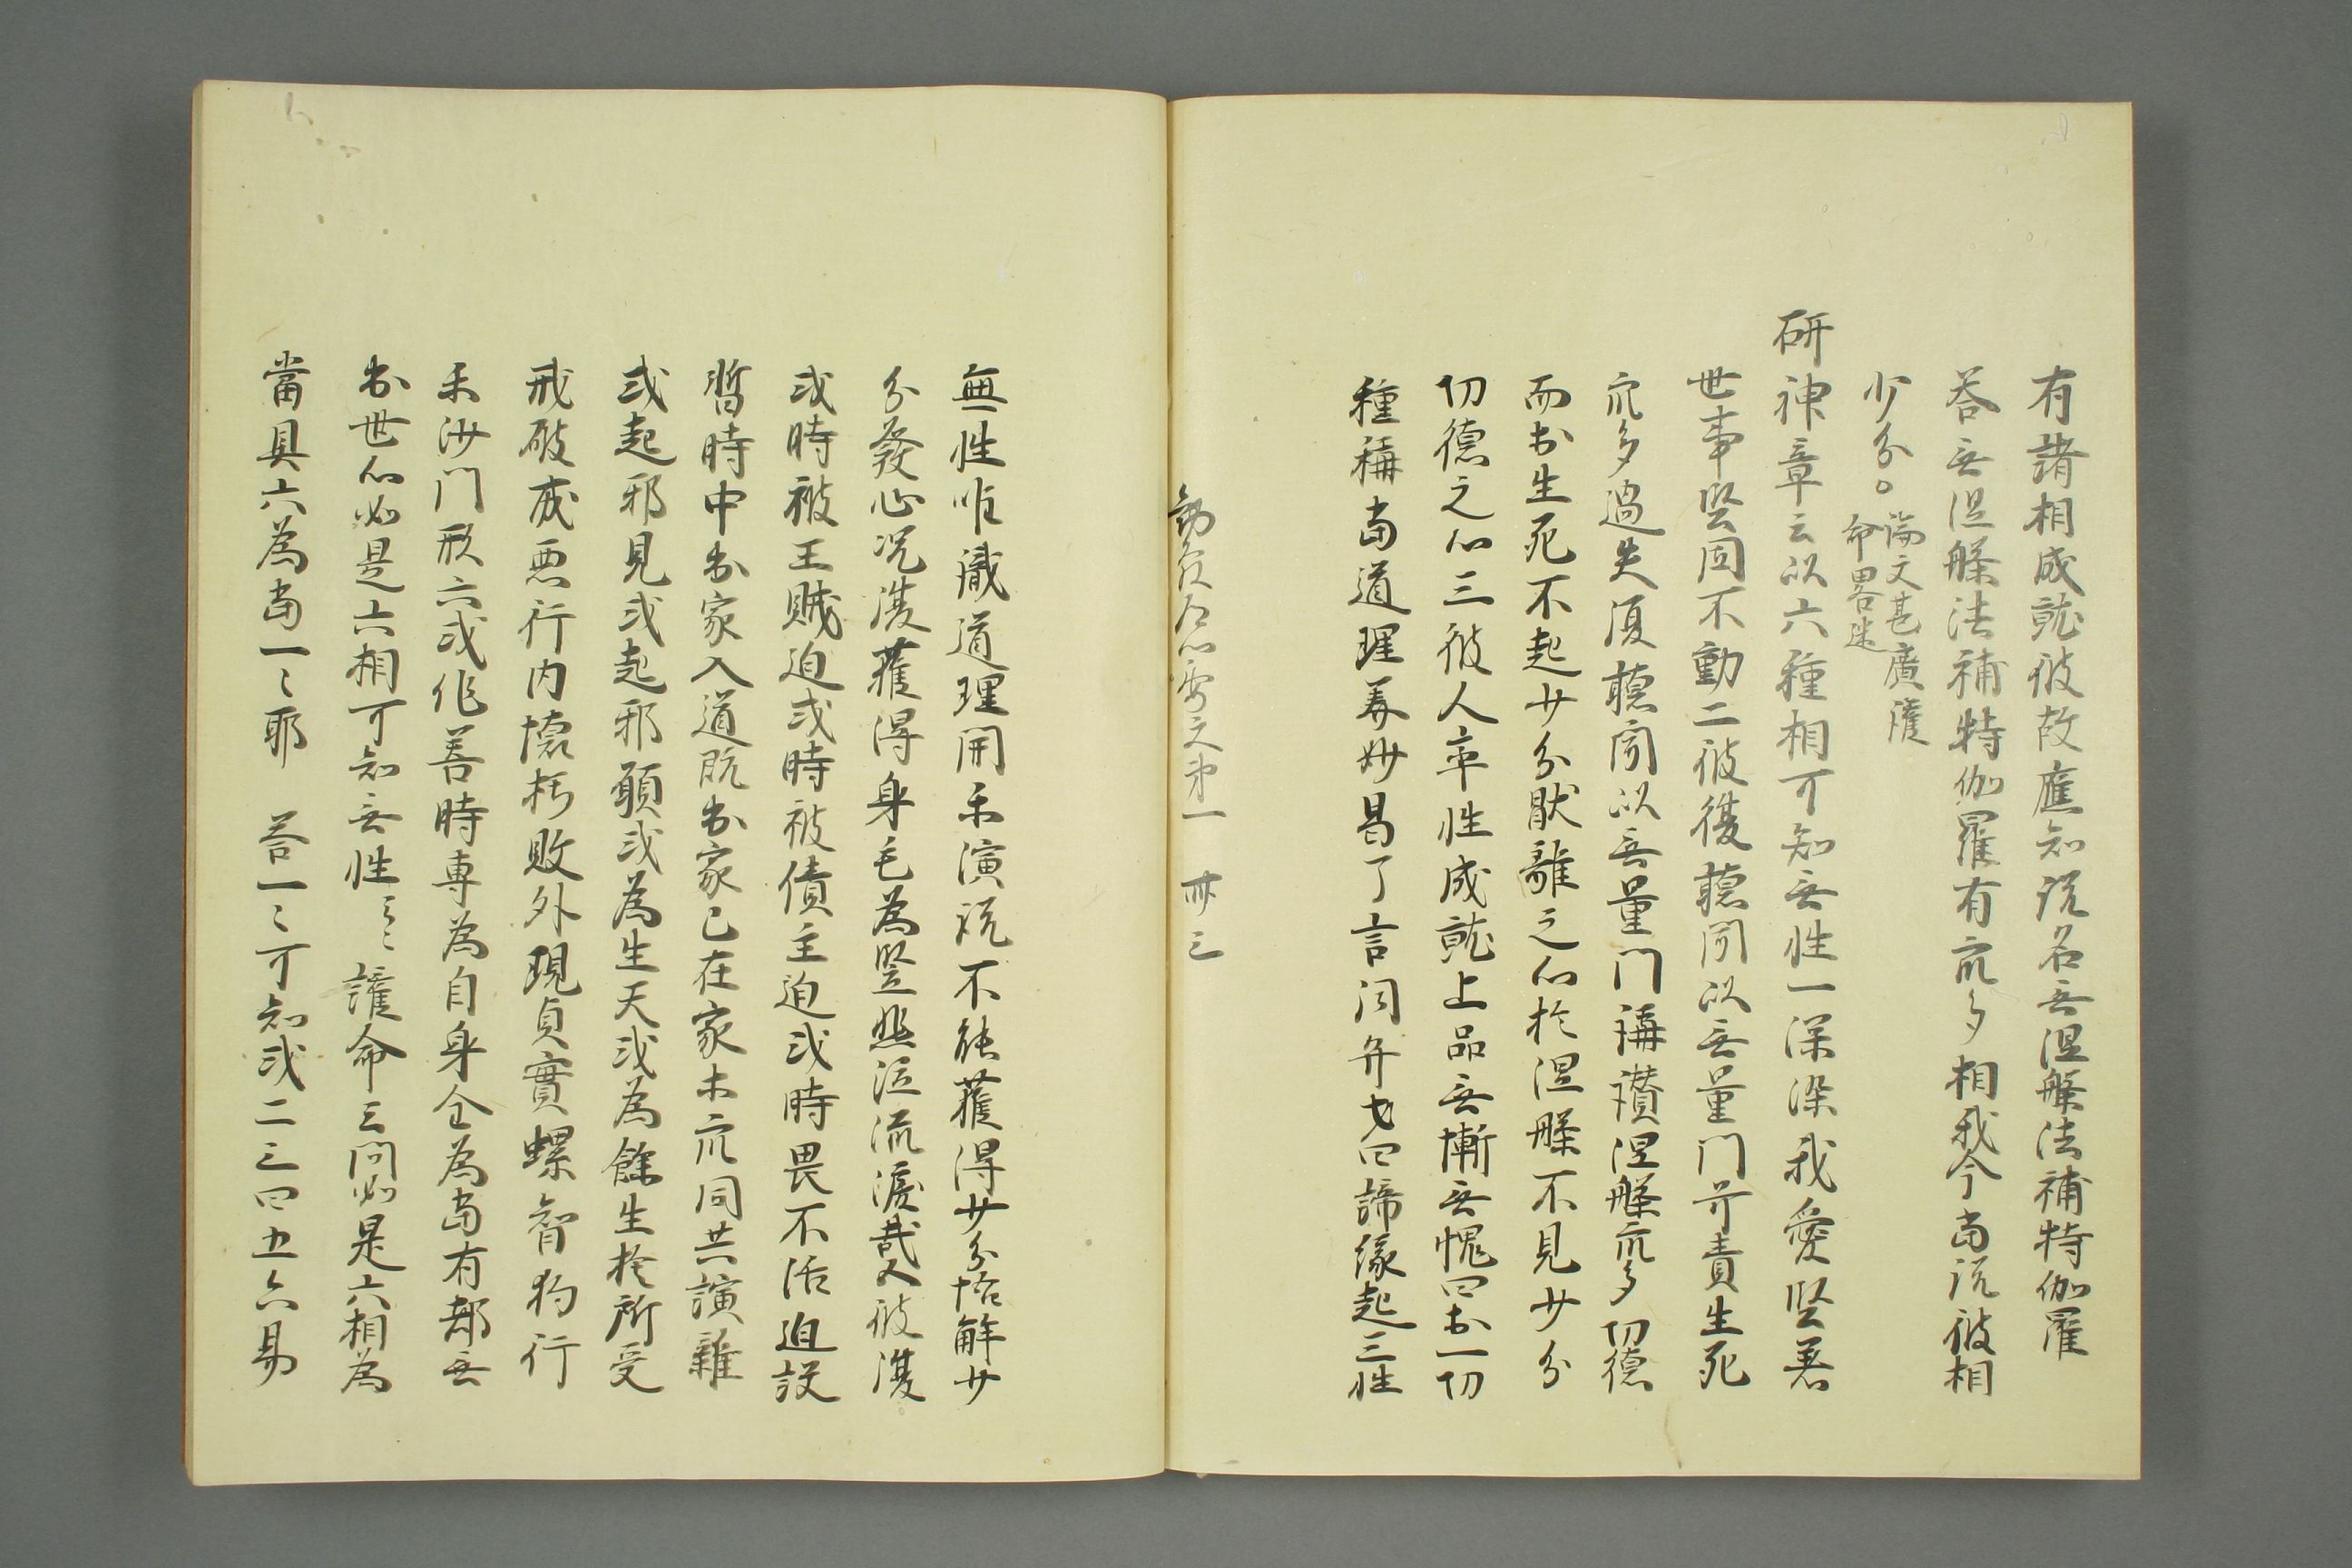 有諸相成就彼故應知説名无涅槃法補特伽羅
答无涅槃法補特伽羅有衆多相我今當説彼相
少分。論文甚廣護
命畧迷
研神章云以六種相可知无性一深染我愛堅著
世事堅固不動二彼復聽聞以无量門呵責生死
衆多過失復聽聞以无量門稱讃涅槃衆多功徳
而於生死不起廿分猒離之心於涅槃不見廿分
功徳之心三彼人卒性成就上品无慚无愧四於一切
種稱當道理善妙易了言詞弁七四諦縁起三性
要文第一 卅三
無性唯識道理開示演説不能獲得廿分悟解廿
分發心況復獲得身毛為竪悲泣流涙哉又彼復
或時被王賊迫或時被債主迫或時畏不活迫設
暫時中出家入道既出家已在家未衆同共諠雜
或起邪見或起邪願或為生天或為餘生於所受
戒破成悪行内懐朽敗外現貞實螺智狗行
示沙門形六或作善時専為自身全為當有都无
出世心如是六相可知无性〻〻 護命云問如是六相為
當具六為當一〻耶 答一〻可知或二三四五六易